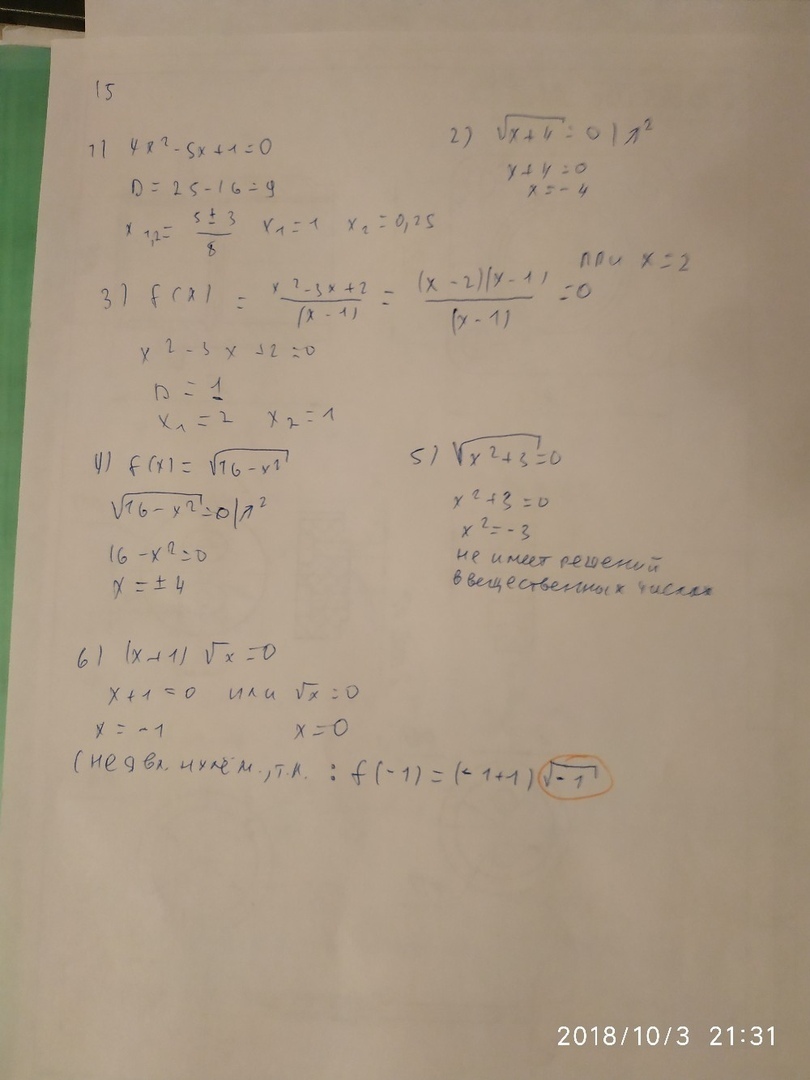 15
1) 4x²-5x+1=0
D=25-16=9
x₁,₂= (5±3)/8 x₁=1 x₂=0,25
2) √(x+4)=0 |^²
x+4=0
x=-4
3) f(x) = (x²-3x+2)/(x-1) = ((x-2)(x-1))/(x-1) =0 при x=2
x²-3x+2=0
D=1
x₁=2 x₂=1
4) f(x)=√(16-x²)
√(16-x²)=0|^²
16-x²=0
x=±4
5) √(x²+3)=0
x²+3=0
x²=-3
не имеет решений
в вещественных числах
6) (x+1)√x=0
x+1=0 или √x=0
x=-1 x=0
(не явл. нулём., т.к. : f(-1)=(-1+1)√-1
2018/10/3 21:31